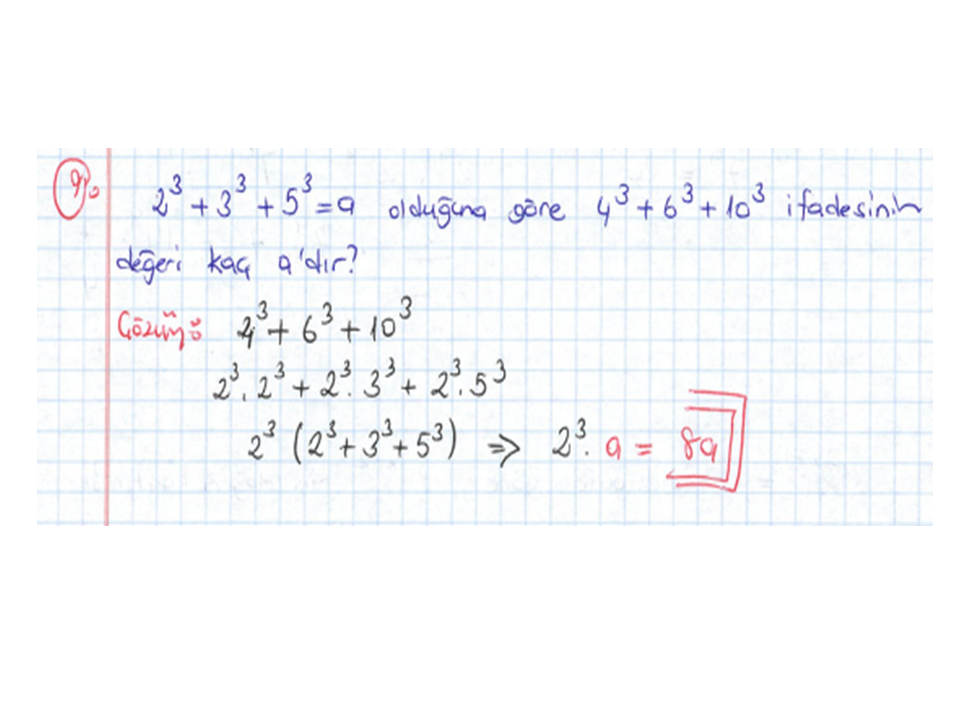 9)
2³ + 3³ + 5³ = a olduğuna göre 4³ + 6³ + 10³ ifadesinin
değeri kaç a'dır?
Çözüm: 4³ + 6³ + 10³
2³.2³ + 2³.3³ + 2³.5³
2³ (2³ + 3³ + 5³) ⇒ 2³. a = 8a